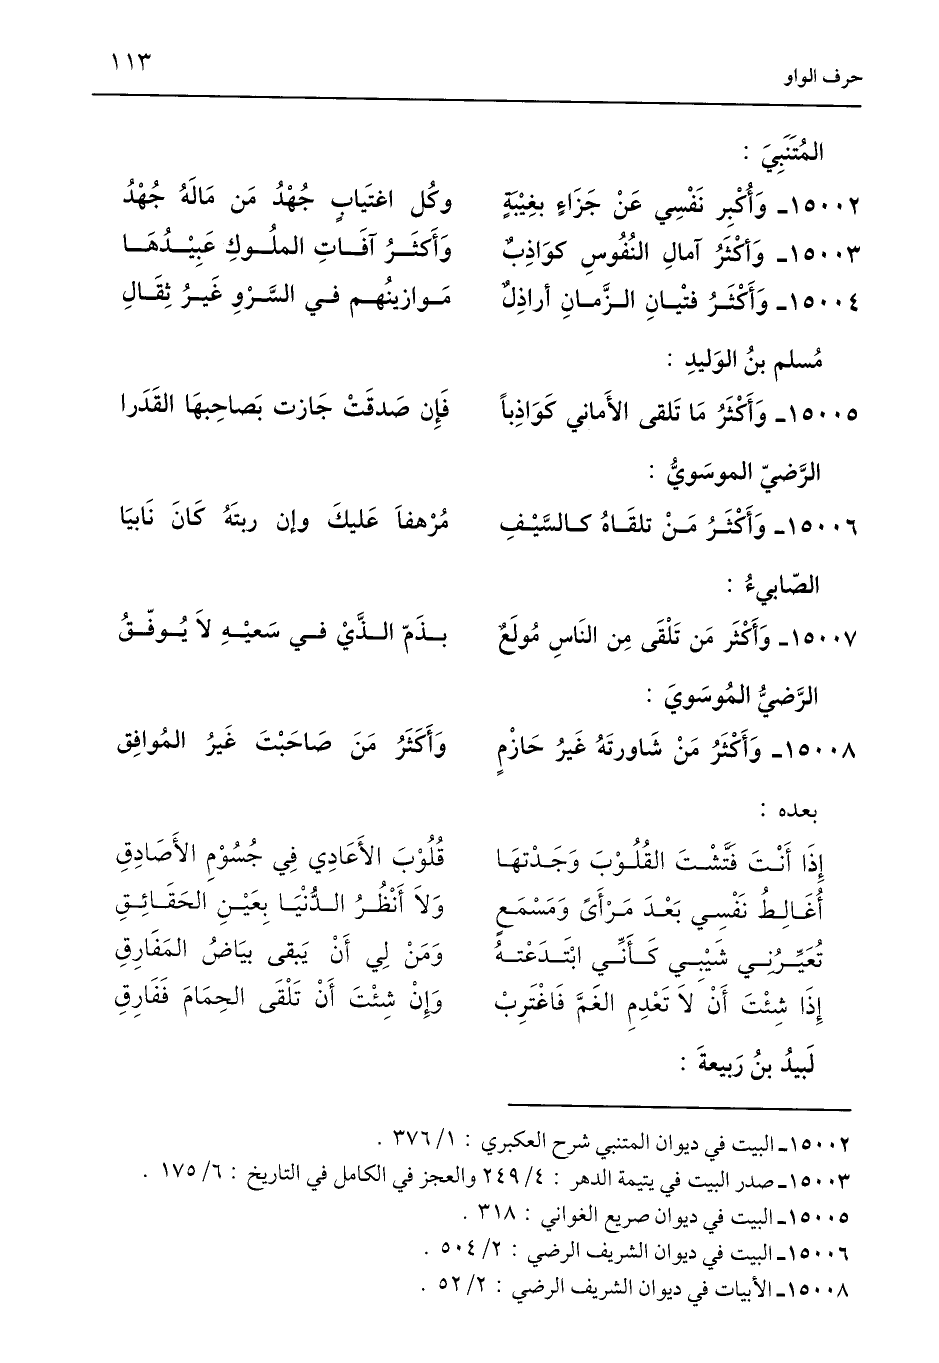 ١١٣
حرف الواو
المُتَنَبِيَ :
١٥٠٠٢ـ وَأُكْبِر نَفْسِي عَنْ جَزَاءٍ بغِيْبَةٍ وكُل اغتَيابٍ جُهْدُ مَن مَالَهُ جُهْدُ
١٥٠٠٣ـ وَأكْثَرُ آمالِ النُفُوسِ كوَاذِبٌ وَأَكثَـرُ آفَـاتِ الملُـوكِ عَبِيْـدُهَـا
١٥٠٠٤ـ وَأَكْثَـرُ فتْيـانِ الـزَّمـانِ أراذِلٌ مَـوازينُهـم فـي السَّرْوِ غَيـرُ ثِقَـالِ
مُسلم بنُ الوَليدِ :
١٥٠٠٥ـ وَأَكْثَرُ مَا تَلقى الأَماني كَوَاذِباً فَإِن صَدقَتْ جَازت بَصاحِبهَا القَدَرا
الرَّضيّ الموسَويُّ :
١٥٠٠٦ـ وَأَكْثَـرُ مَـنْ تلقَـاهُ كـالسَّيْـفِ مُرْهفاً عَليكَ وإن ربتَهُ كَانَ نَابيَا
الصّابيءُ :
١٥٠٠٧ـ وَأَكْثَر مَن تَلْقَى مِن النَاسِ مُولَعٌ بـذَمّ الـذَّيْ فـي سَعيْـهِ لاَ يُـوفّـقُ
الرَّضيُّ المُوسَويَ :
١٥٠٠٨ـ وَأَكْثَرُ مَنْ شَاورتَهُ غَيرُ حَازْمٍ وَأَكَثَرُ مَنَ صَاحَبْتَ غَيرُ المُوافِق
بعده :
إِذَا أَنْـتَ فَتَّشْـتَ القُلُـوْبَ وَجَـدْتهَـا قُلُوْبَ الأَعَادِي فِي جُسُوْمِ الأَصَادِقِ
أُغَـالِطُ نَفْسِي بَعْدَ مَـرْأىً وَمَسْمَـعٍ وَلاَ أَنْظُـرُ الـدُّنْيَـا بِعَيْـنِ الحَقَـائِـقِ
تُعَيِّـرُنِـي شَيْبِـي كَـأَنِّـي ابْتَـدَعْتـهُ وَمَنْ لِي أَنْ يَبقى بيَاضُ المَفَارِقِ
إِذَا شِئْتَ أَنْ لاَ تَعْدِمِ الغَمَّ فَاغْتَرِبْ وَإِنْ شِئْتَ أَنْ تَلْقَى الحِمَامَ فَفَارِقِ
لَبيدُ بنُ رَبيعةَ :
١٥٠٠٢ـ البيت في ديوان المتنبي شرح العكبري : ١/ ٣٧٦ .
١٥٠٠٣ـ صدر البيت في يتيمة الدهر : ٤/ ٢٤٩ والعجز في الكامل في التاريخ : ٦/ ١٧٥ .
١٥٠٠٥ـ البيت في ديوان صريع الغواني : ٣١٨ .
١٥٠٠٦ـ البيت في ديوان الشريف الرضي : ٢/ ٥٠٤ .
١٥٠٠٨ـ الأبيات في ديوان الشريف الرضي : ٢/ ٥٢ .